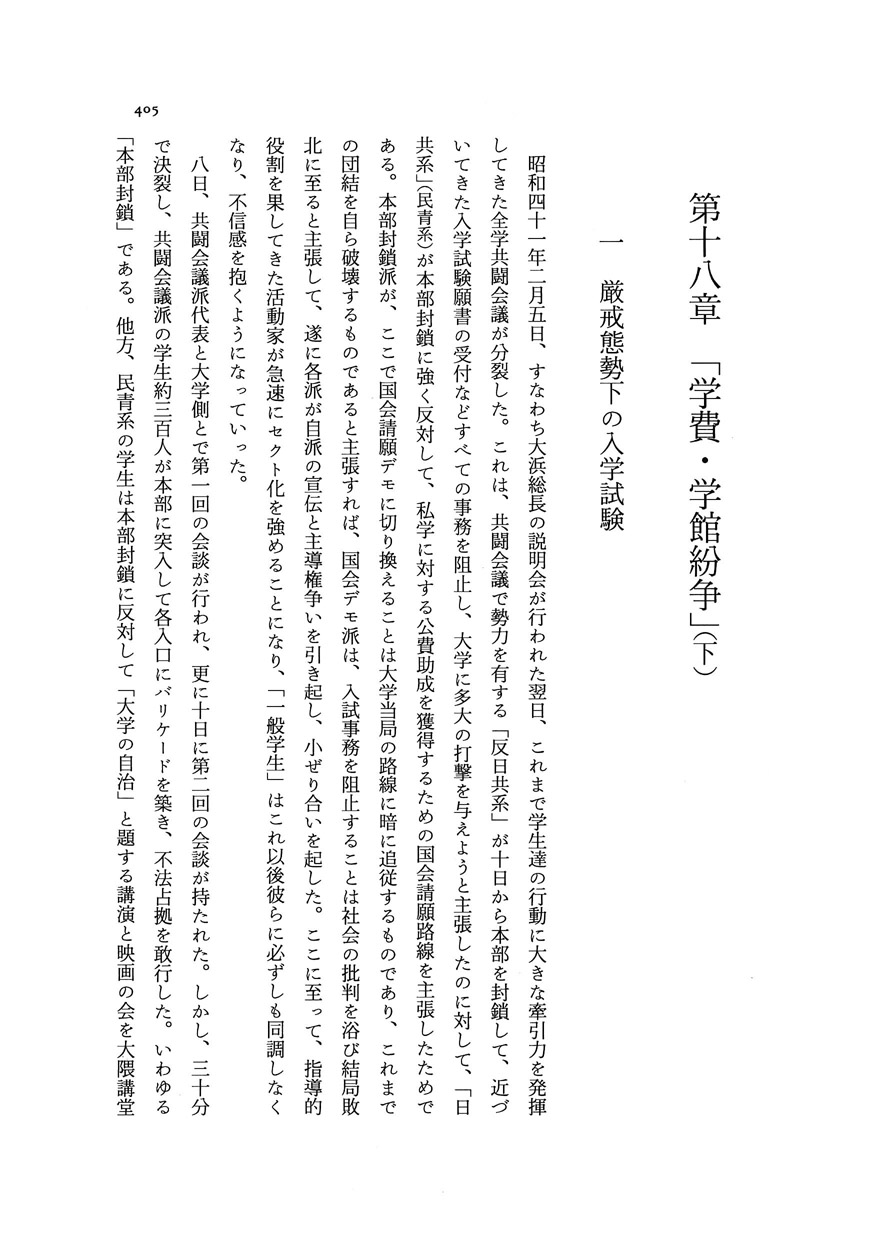 第十八章　「学費・学館紛争」（下）
一　厳戒態勢下の入学試験
昭和四十一年二月五日、すなわち大浜総長の説明会が行われた翌日、これまで学生達の行動に大きな牽引力を発揮
してきた全学共闘会議が分裂した。これは、共闘会議で勢力を有する「反日共系」が十日から本部を封鎖して、近づ
いてきた入学試験願書の受付などすべての事務を阻止し、大学に多大の打撃を与えようと主張したのに対して、「日
共系」（民青系）が本部封鎖に強く反対して、私学に対する公費助成を獲得するための国会請願路線を主張したためで
ある。本部封鎖派が、ここで国会請願デモに切り換えることは大学当局の路線に暗に追従するものであり、これまで
の団結を自ら破壊するものであると主張すれば、国会デモ派は、入試事務を阻止することは社会の批判を浴び結局敗
北に至ると主張して、遂に各派が自派の宣伝と主導権争いを引き起し、小ぜり合いを起した。ここに至って、指導的
役割を果してきた活動家が急速にセクト化を強めることになり、「一般学生」はこれ以後彼らに必ずしも同調しなく
なり、不信感を抱くようになっていった。
八日、共闘会議派代表と大学側とで第一回の会談が行われ、更に十日に第二回の会談が持たれた。しかし、三十分
で決裂し、共闘会議派の学生約三百人が本部に突入して各入口にバリケードを築き、不法占拠を敢行した。いわゆる
「本部封鎖」である。他方、民青系の学生は本部封鎖に反対して「大学の自治」と題する講演と映画の会を大隈講堂
405